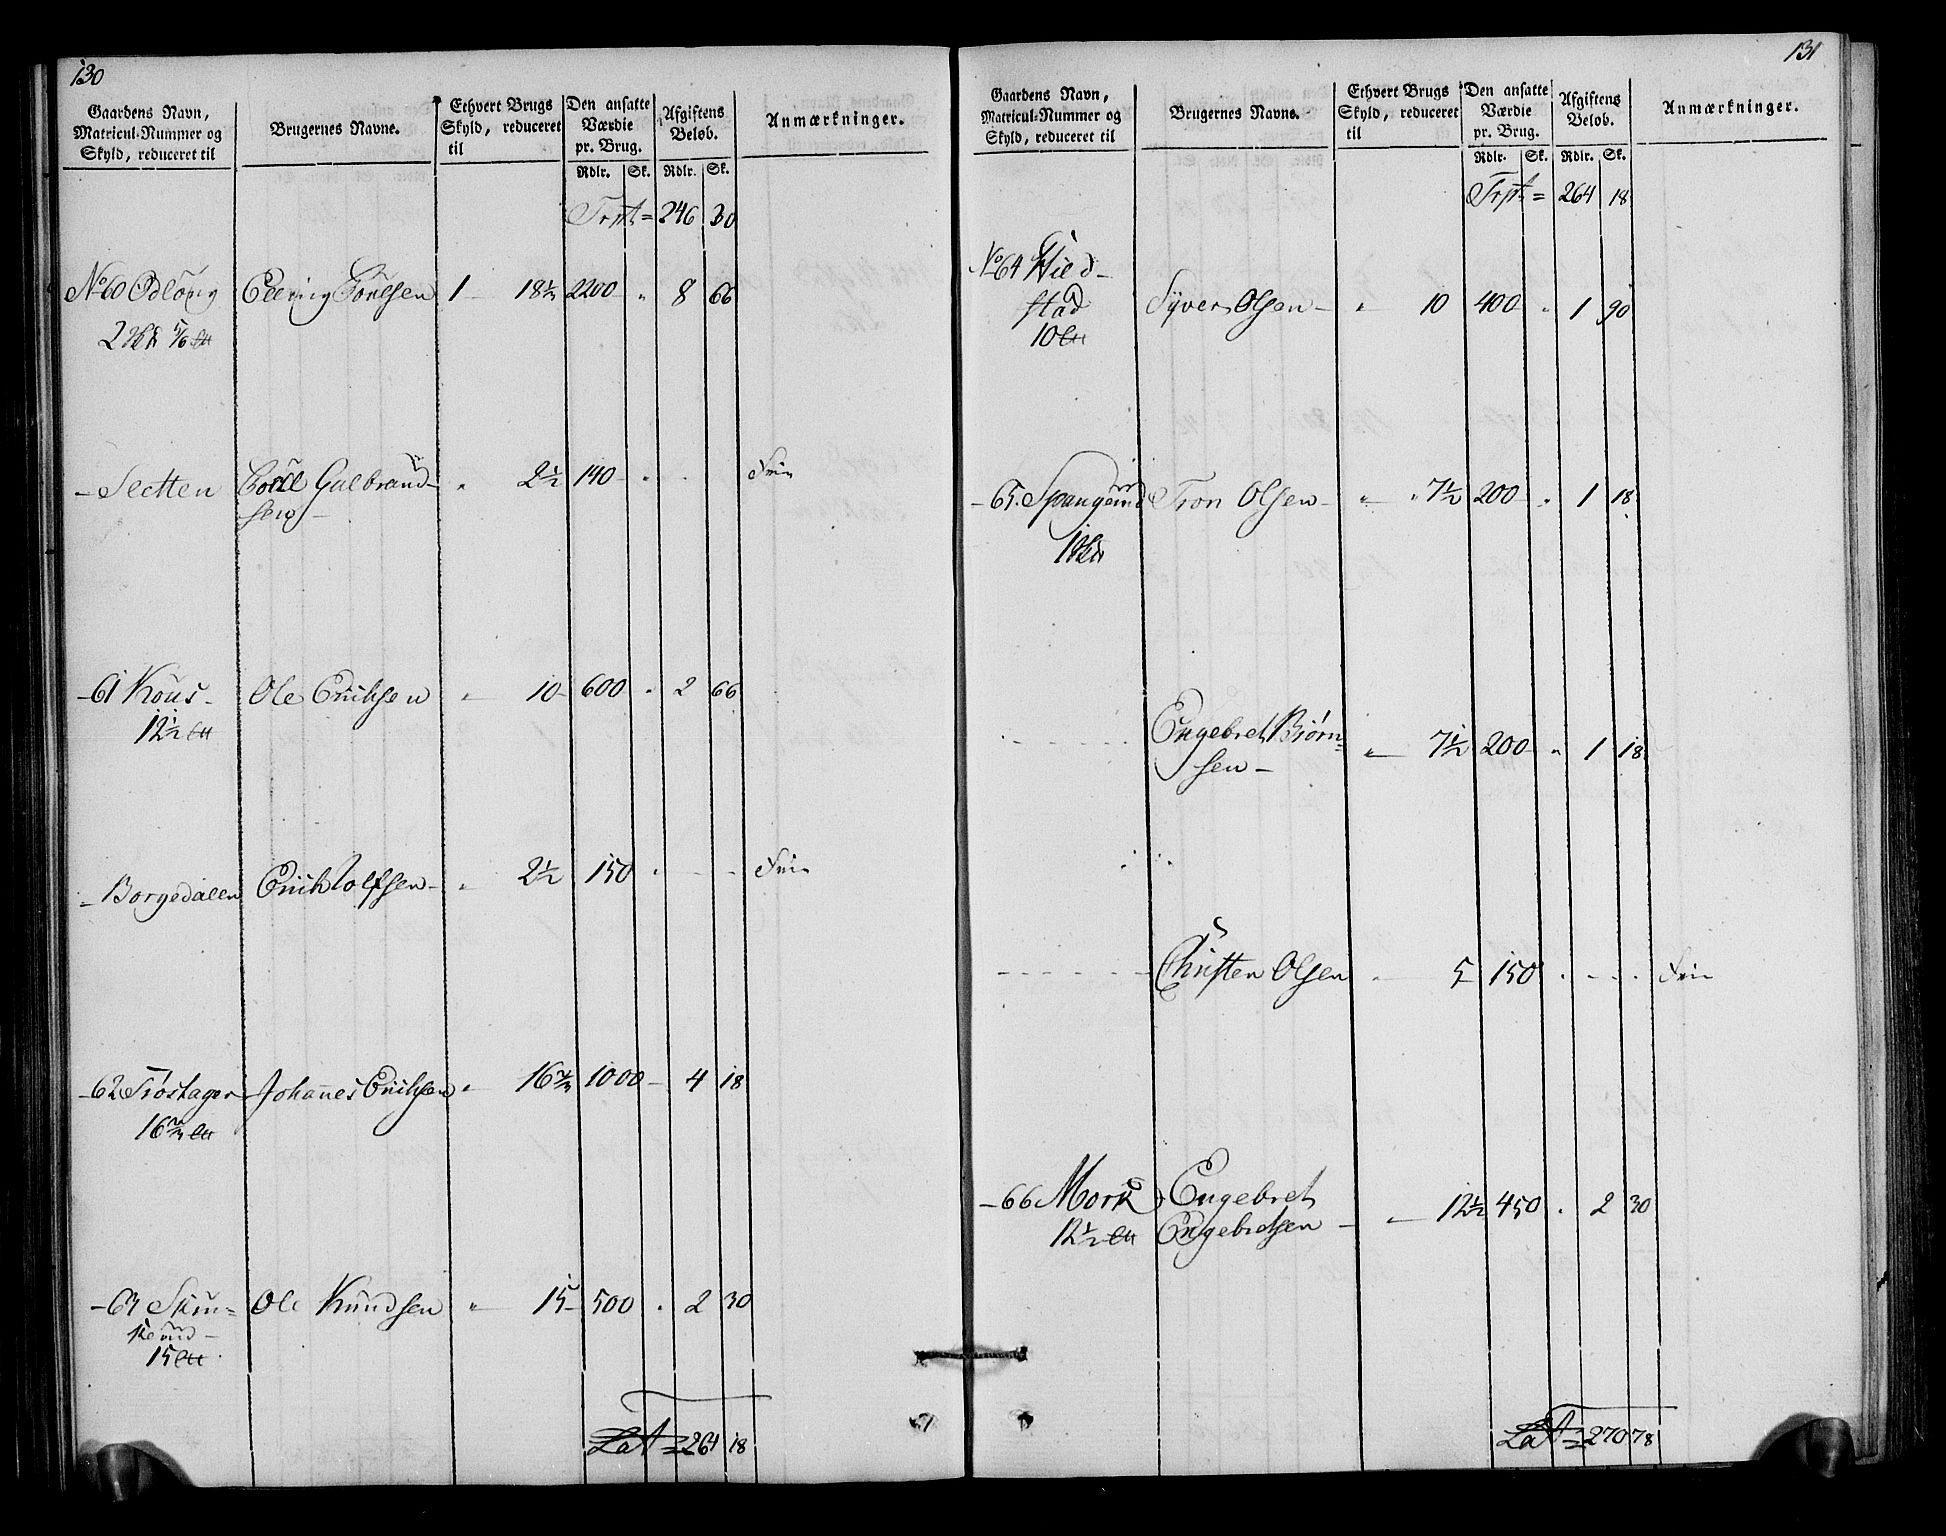 130
Gaardens Navn,
Matricul-Nummer og
Skyld, reduceret til
Brugernes Navne.
Ethvert Brugs
Skyld, reduceret
til
Den ansatte
Værdie
pr. Brug.
Afgiftens
Beløb.
Anmærkninger.
Rdlr. Sk. Rdlr. Sk.
Trspt = 246 30
No 60 Odloug Elling Poulsen 1 - 18 1/3 2200 " 8 66
- Sletten Poul Gulbrand- " 2 1/2 140 " . Frie
sen -
- 61 Kous - Ole Erichsen " 10 600 " 2 66
12 1/2
- Borgedalen Erich Wolfsen - " 2 1/2 150 " - - Frie
- 62 Trøstager Johannes Erichsen " 16 2/3 1000 - 4 18
16 2/3
- 63 Skin= Ole Knudsen " 15 500 " 2 30
15
Lat = 264 18
131
Gaardens Navn,
Matricul-Nummer og
Skyld, reduceret til
Brugernes Navne.
Ethvert Brugs
Skyld, reduceret
til
Den ansatte
Værdie
pr. Brug.
Afgiftens
Beløb.
Anmærkninger.
Rdlr. Sk. Rdlr. Sk.
Trspt = 264 18
No 64 Hield-
stad Syver Olsen - " 10 400 " 1 90
10
- 65. Spangerud Tron Olsen - " 7 1/2 200 " 1 18
Engebret Biørn=
sen - " 7 1/2 200 " 1 18
Christen Olsen " 5 150 " - - Frie
- 66 Mork Engebret
12 1/2 Engebretsen - " 12 1/2 450 " 2 30
Lat = 270 78